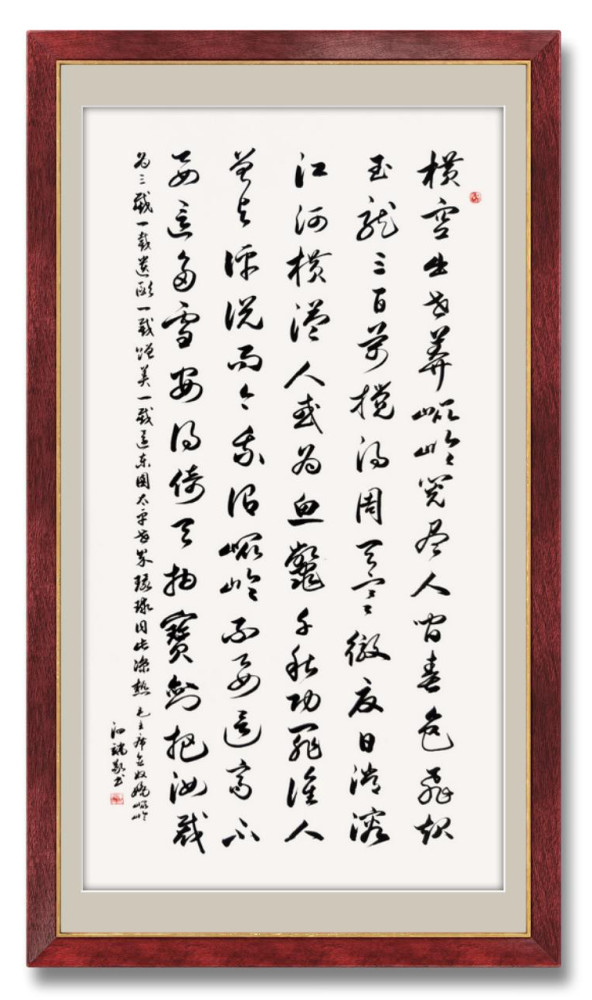 横空出世莽崐崘阅尽人间春色飞起
玉龙三百万搅得周天寒彻夏日消溶
江河横溢人或为鱼鳖千秋功罪谁人
曾与评说而今我谓崐崘不要这高不
要这多雪安得倚天抽寶剑把汝裁
为三截一截遗欧一截赠美一截还东国太平世界环球同此凉热 毛主席念奴娇崐崘